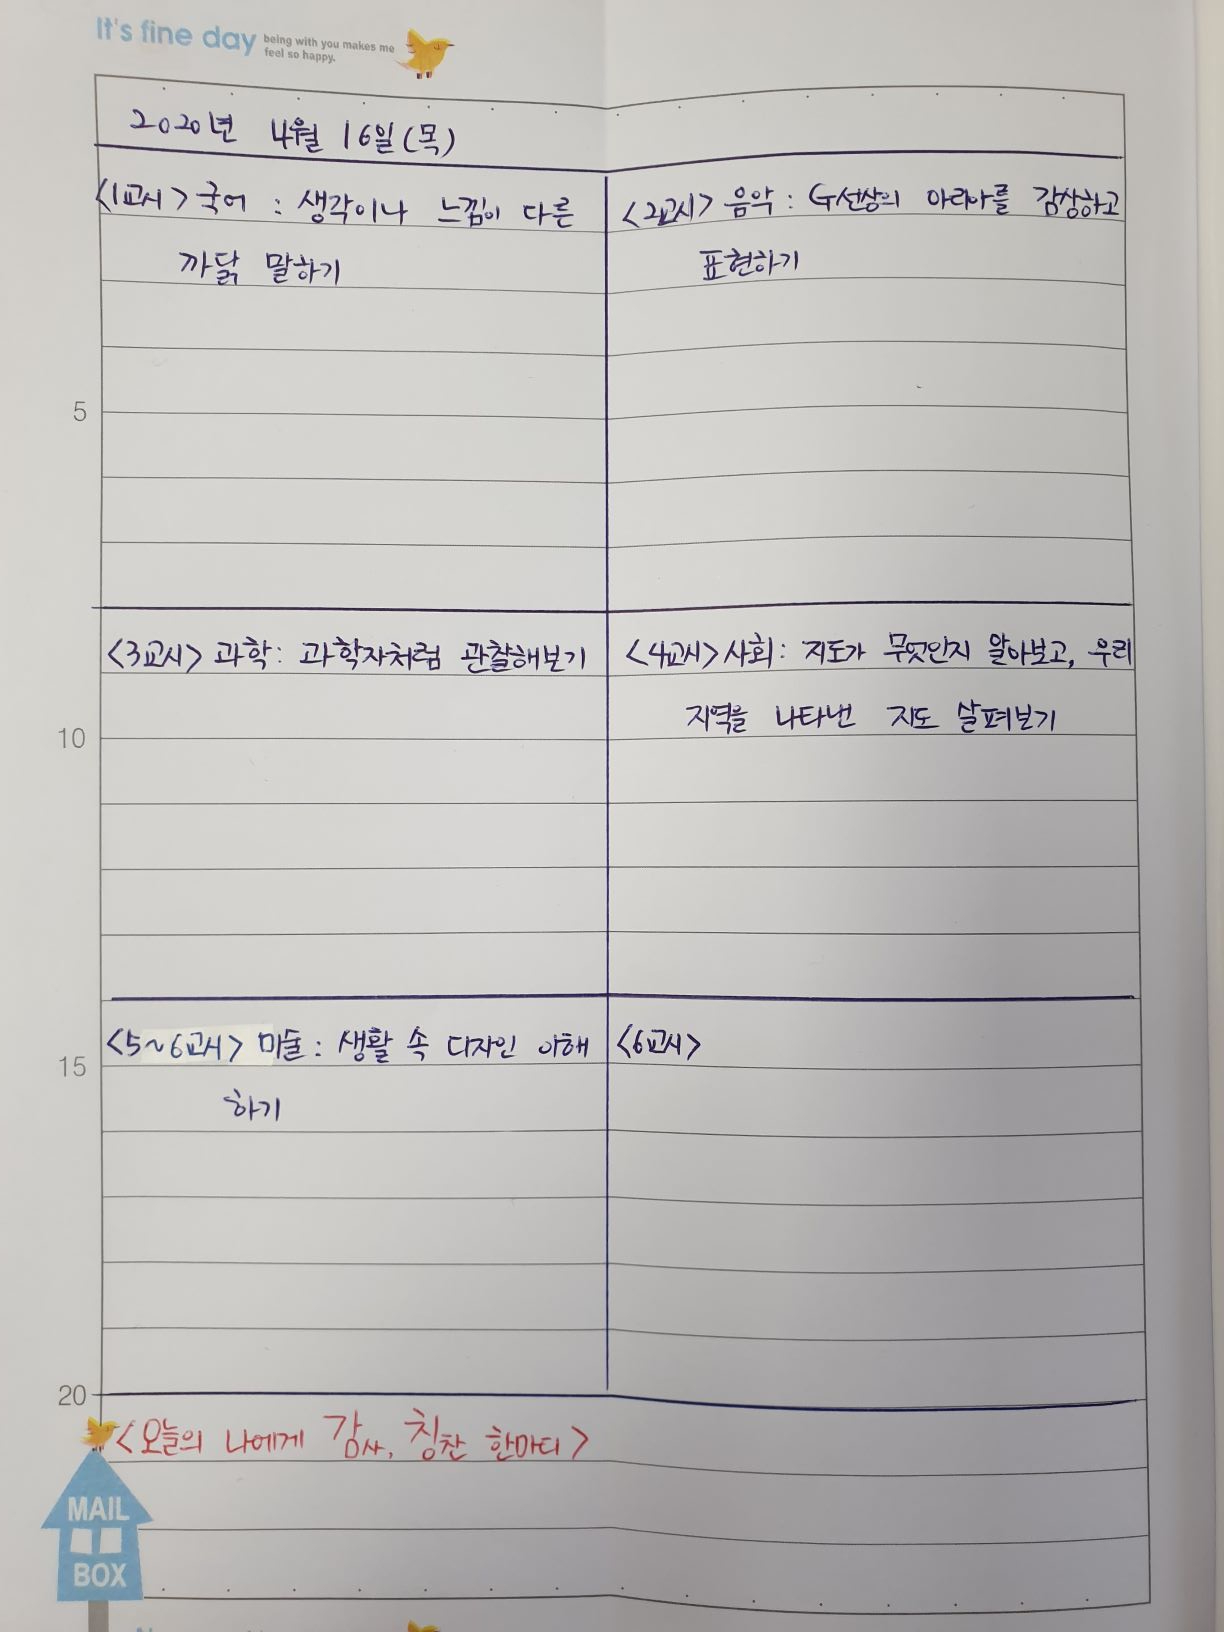 It's fine day
being with you makes me
feel so happy.
2020년 4월 16일(목)
<1교시> 국어 : 생각이나 느낌이 다른
까닭 말하기
<2교시> 음악 : G선상의 아리아를 감상하고
표현하기
5
<3교시> 과학 : 과학자처럼 관찰해보기
<4교시> 사회 : 지도가 무엇인지 알아보고, 우리
지역을 나타낸 지도 살펴보기
10
<5~6교시> 미술 : 생활 속 디자인 이해
하기
<6교시>
15
20
<오늘의 나에게 감사, 칭찬 한마디>
MAIL
BOX